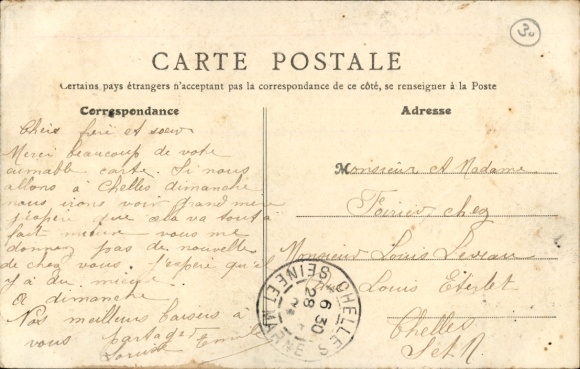 30
CARTE POSTALE
Certains pays étrangers n'acceptant pas la correspondance de ce côté, se renseigner à la Poste
Correspondance
Adresse
Chers frère et soeur
Merci beaucoup de votre
aimable carte. Si nous
allons à Chelles dimanche
nous irons voir grand mère
j'espère que cela va tout à
fait mieux vous me
donnez pas de nouvelle
de chez vous. j'espère qu'il
y a du mieux
A dimanche
Nos meilleurs baisers à
vous partager
Monsieur et Madame
Poirier chez
Monsieur Louis
Louis
Chelles
S et M
CHELLES
6 30
28
SEINE ET MARNE